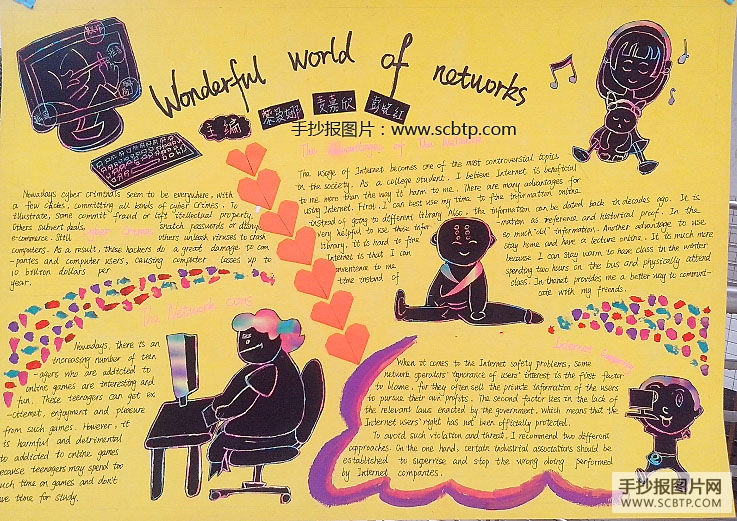 Wonderful world of networks
主编
手抄报图片：www.scbtp.com
The advantages of the Internet
The usage of Internet becomes one of the most controversial topics
in the society. As a college student, I believe Internet is beneficial
to me more than the way it harm to me. There are many advantages for
using Internet. First, I can best use my time to fine information online
instead is going to different library. Also, the information can be dated back in decades ago. It is
very helpful to use those infor -mation as reference and historical proof. In the
library, it is hard to fine so much "old" information. Another advantage to use
Internet is that I can stay home and have a lecture online. It is much more
convenience to me because I can stay warm to have class in the winter
instead of spending two hours on the bus and physically attend
class. Internet provides me a better way to communi-
cate with my friends.
Nowadays cyber criminals seem to be everywhere, with
a few clicks, committing all kinds of cyber crimes. To
illustrate, some commit fraud or left intellectual property.
Others subvert deals, snatch passwords or disrupt
e-commerce. Still others unleash viruses to crash
computers. As a result, these hackers do a great damage to com
-panies and computer users, causing computer losses up to
10 billion dollars per
year.
The Network cons
Nowadays, there is an
increasing number of teen
-agers who are addicted to
online games are interesting and
fun. These teenagers can get ex
-citement, enjoyment and pleasure
from such games. However, it
is harmful and detrimental
to addicted to online games
because teenagers may spend too
much time on games and don't
have time for study.
When it comes to the Internet safety problems, some
network operators' ignorance of users' interest is the first factor
to blame, for they often sell the private information of the users
to pursue their own profits. The second factor lies in the lack of
the relevant laws enacted by the government, which means that the
Internet users' right has not been officially protected.
To avoid such violation and threat, I recommend two different
approaches. On the one hand, certain industrial associations should be
established to supervise and stop the wrong doing performed
by Internet companies.
手抄报图片网
WWW.SCBTP.COM